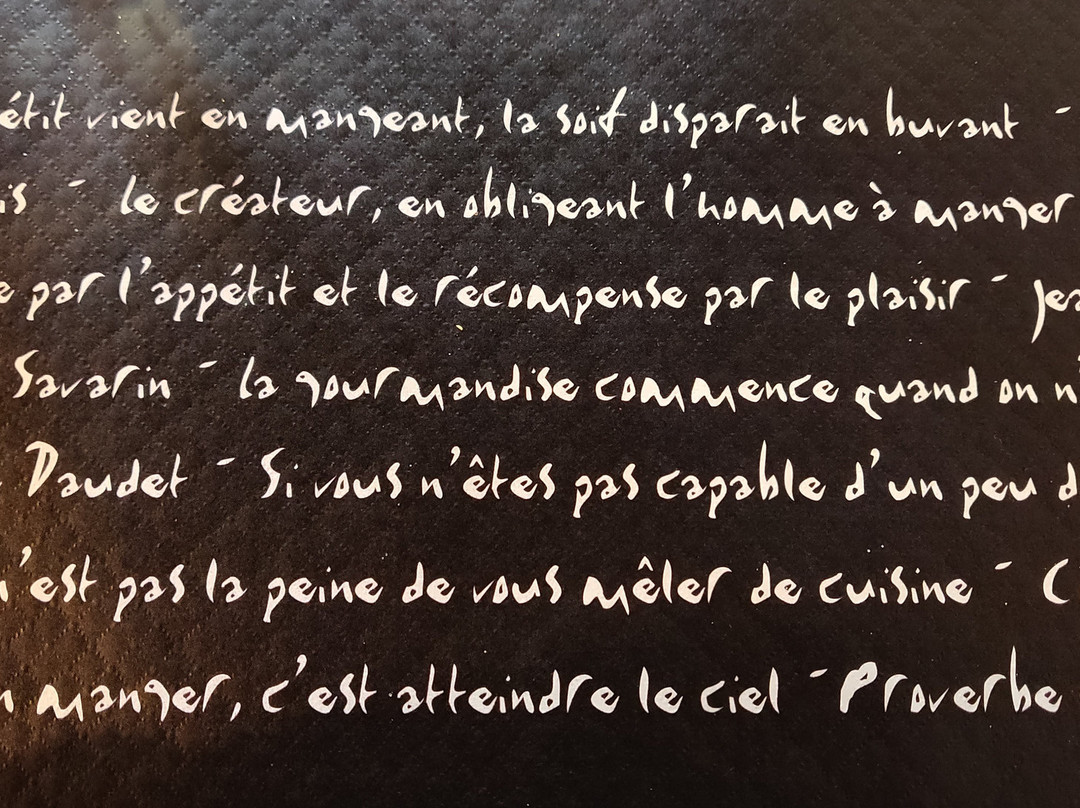 étit vient en mangeant, la soif disparait en buvant -
is - le créateur, en obligeant l'homme à manger
e par l'appétit et le récompense par le plaisir - Jea
Savarin - la gourmandise commence quand on n'
Daudet - Si vous n'êtes pas capable d'un peu d
n'est pas la peine de vous mêler de cuisine - C
n manger, c'est atteindre le ciel - Proverbe